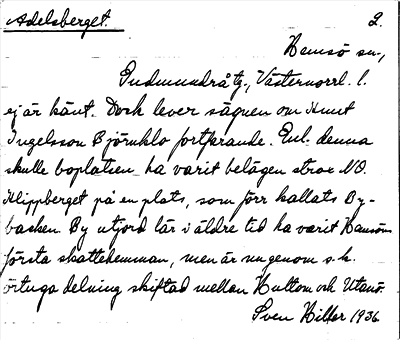 Adelsberget. 2.
Hemsö sn.,
Gudmundrå tg., Västernorrl. l.
ej är känt. Dock lever sägnen om Knut
Ingelsson Björnklo fortfarande. Enl. denna
skulle boplatsen ha varit belägen strax NO.
Klippberget på en plats, som förr kallats By-
backen. By utjord lär i äldre tid ha varit Hemsöns
första skattehemman, men är nu genom s.k.
örtuga delning skiftad mellan Hultom och Utanö.
Sven Hiller 1936